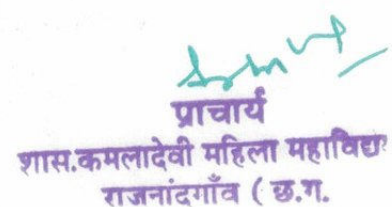 प्राचार्य
शास.कमलादेवी महिला महाविद्य
राजनांदगाँव ( छ.ग.